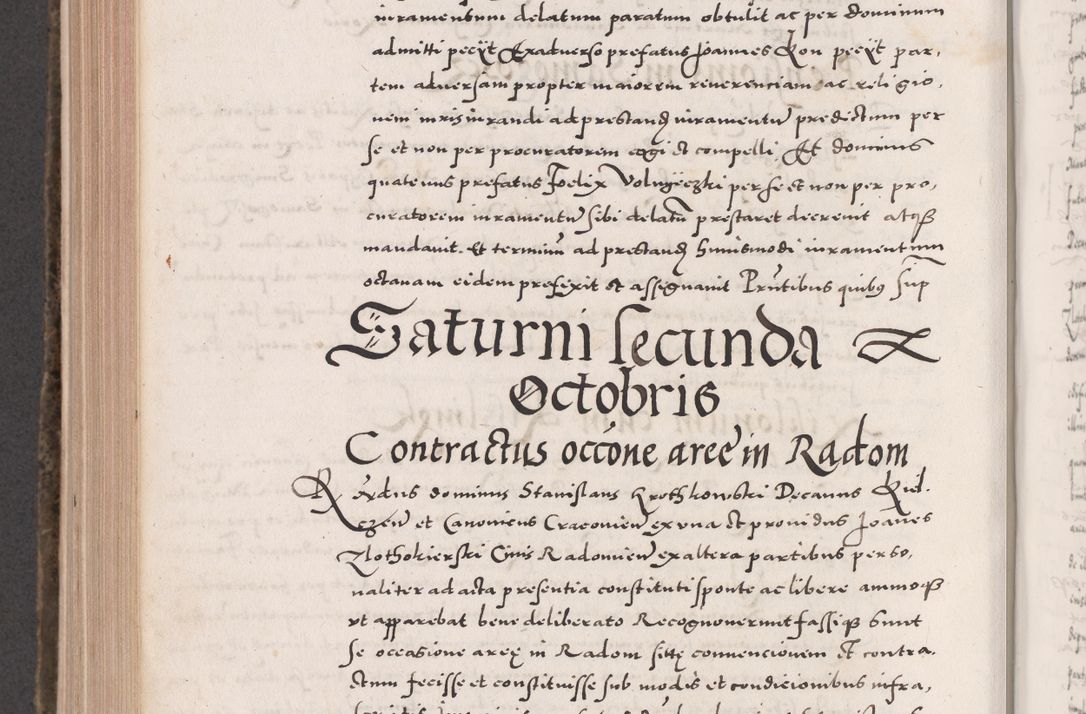 iuramentum delatum paratum obtulit ac per dominum
admitti peciit Ex adverso prefatus Joannes Kon peciit par,
tem adversam propter maiorem reverenciam ac religio,
nem iurisiurandi ad prestand iuramentũ predictum per
se et non per procuratorem cogi et compelli Et dominus
quatenus prefatus Foelix per se et non per pro,
curatorem iuramentũ sibi delatũ prestaret decrevit atqȝ
mandavit. Et terminũ ad prestand huiusmodi iuramentum
octavam eidem prefixit et assignavit Prñtibus quibȝ sup
Saturni secunda
Octobris
Contractus occõne areę in Radom
Rñdus dominus Stanislaus Krothkowski Decanus Kiel,
czeñ et Canonicus Cracovieñ ex una et providus Joañes
Zlothokierski Civis Radomieñ ex altera partibus perso,
naliter ad acta presentia constituti sponte ac libere animoqȝ
ut apparebat bene deliberato Recognoverunt fassiqȝ sunt
se occasione areę in Radom sitę convencionem et contra,
ctum fecisse et constituisse sub modis et condicionibus infra,